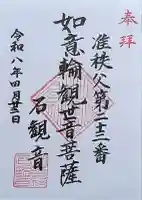 奉拝
准秩父第二十二番
如意輪観世音菩薩
石観音
令和八年四月廿三日